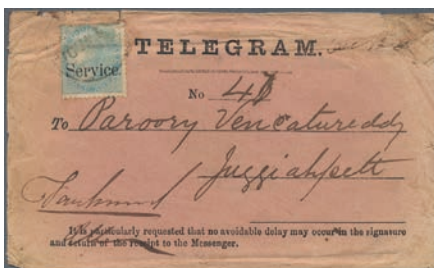 TELEGRAM.
Service
No 41
To Paroory Vencatureddy
Juggiahpett
It is particularly requested that no avoidable delay may occur in the signature
and return of the receipt to the Messenger.